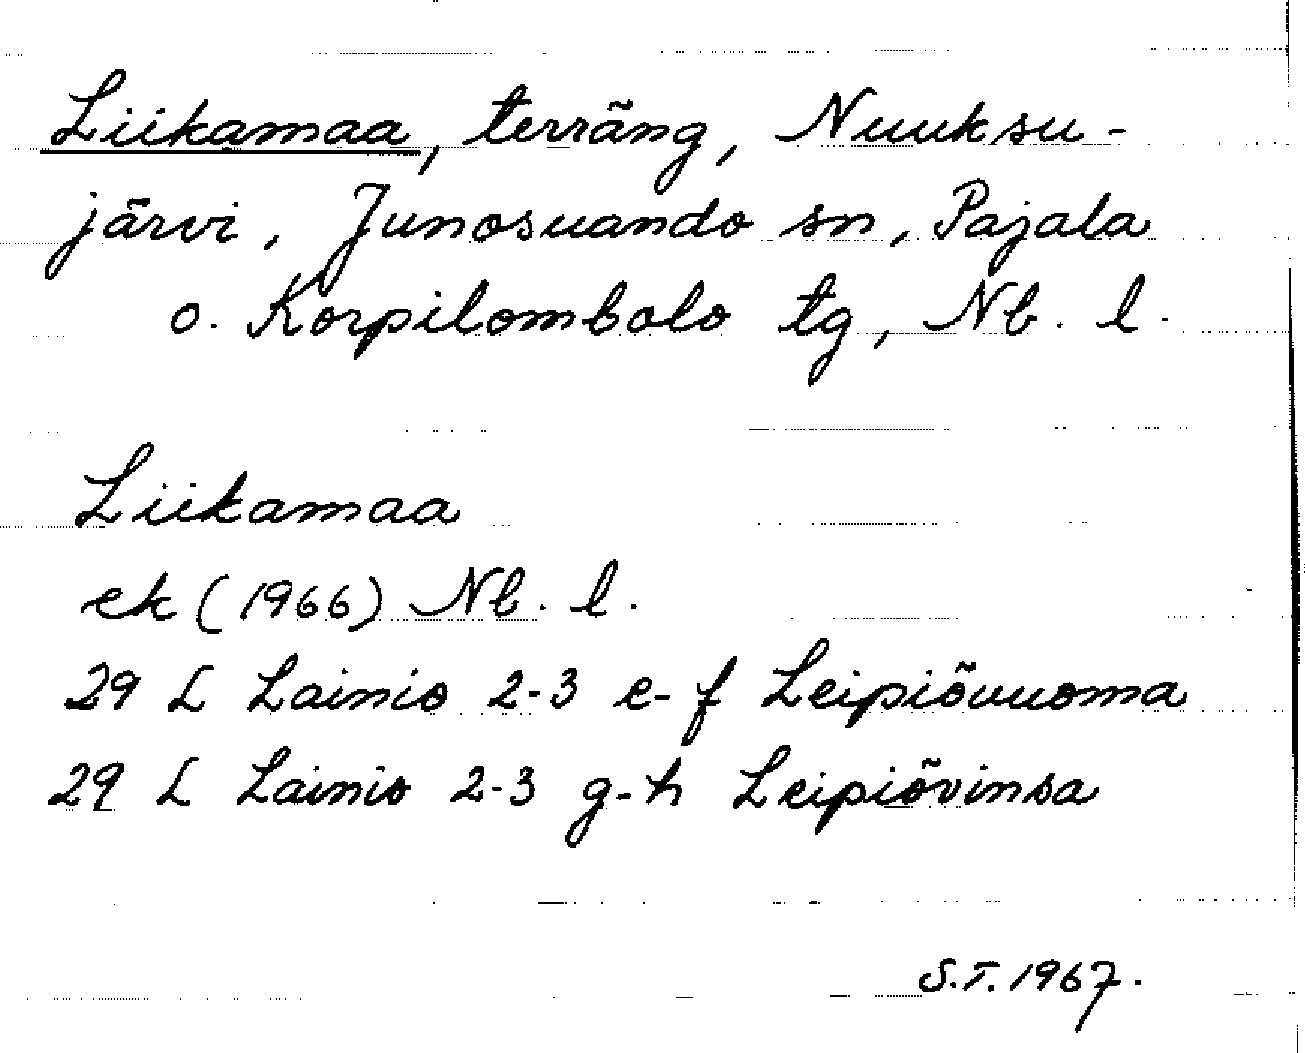 Liikamaa, terräng, Nuuksu-
järvi, Junosuando sn, Pajala
o. Korpilombolo tg, Nb. l.
Liikamaa
ek (1966) Nb. l.
29 L Lainio 2-3 e-f Leipiövuoma
29 L Lainio 2-3 g-h Leipiövinsa
S.T. 1967.